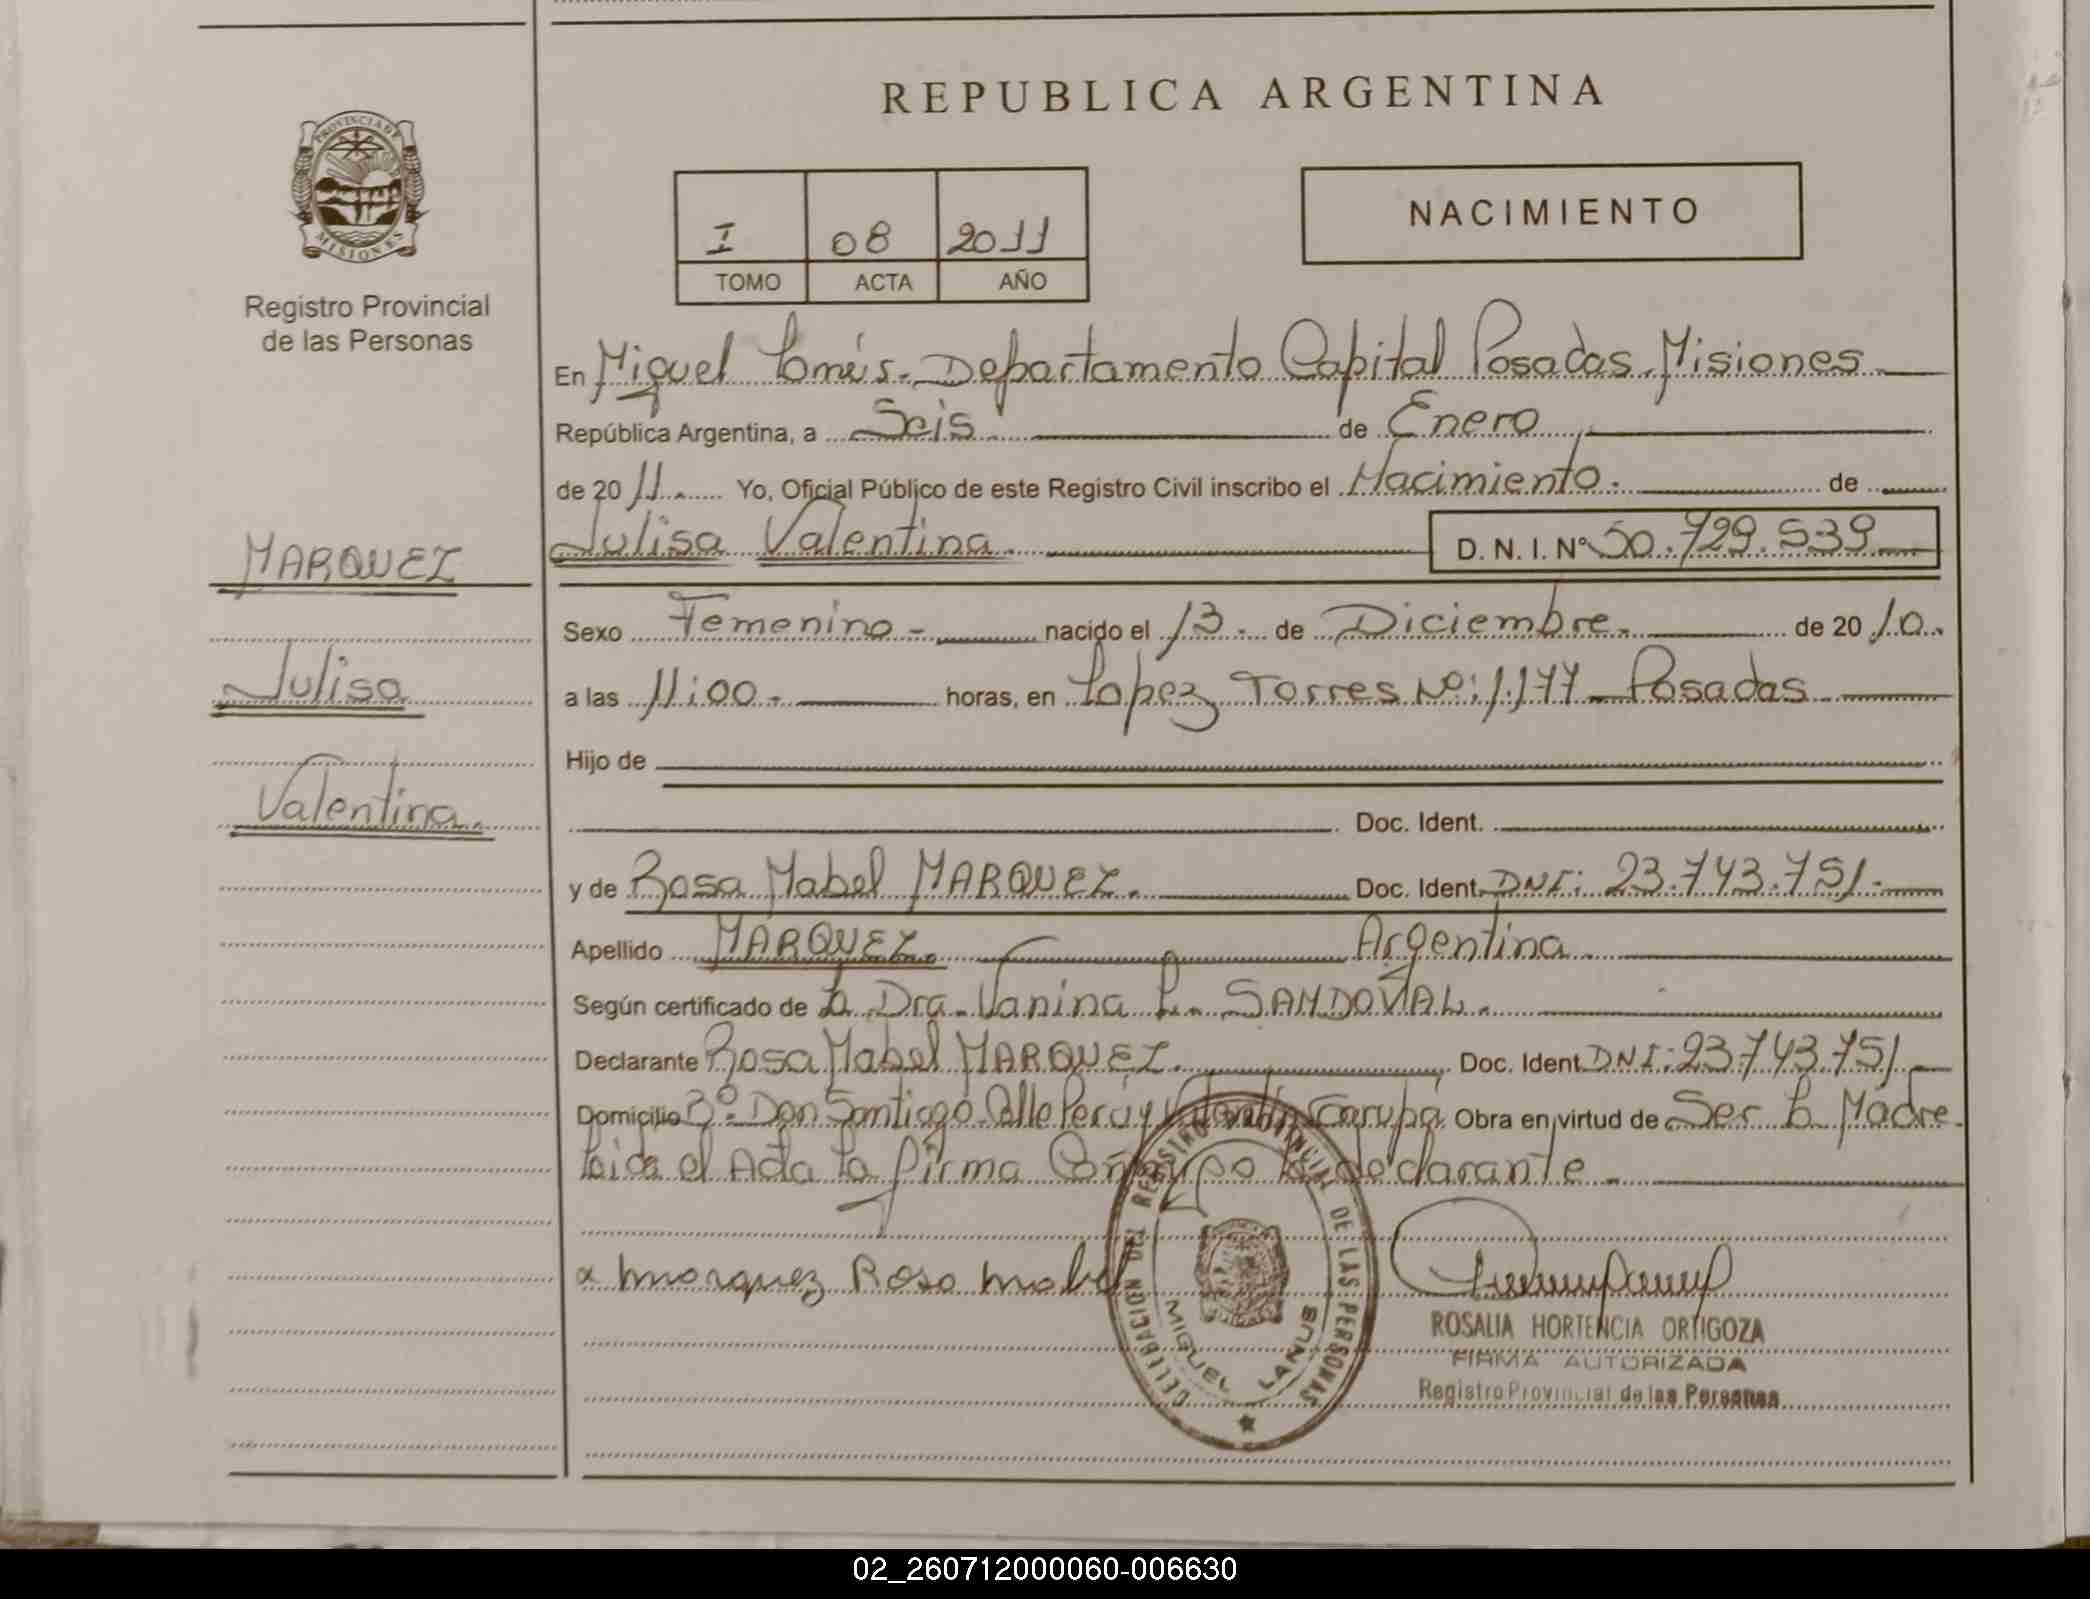 REPUBLICA ARGENTINA
PROVINCIA DE MISIONES
Registro Provincial
de las Personas
I 08 2011
TOMO ACTA AÑO
NACIMIENTO
En Miguel Lanús. Departamento Capital Posadas. Misiones
República Argentina, a Seis de Enero
de 2011. Yo, Oficial Público de este Registro Civil inscribo el Nacimiento. de
Julisa Valentina. D. N. I. Nº 50.729.539
MARQUEZ
Julisa
Valentina.
Sexo Femenino - nacido el 13 - de Diciembre. de 2010.
a las 11:00 - horas, en Lopez Torres Nº: 1.177 - Posadas
Hijo de
Doc. Ident.
y de Rosa Mabel MARQUEZ. Doc. Ident. DNI: 23.743.751.
Apellido MARQUEZ. Argentina.
Según certificado de La Dra. Vanina L. SANDOVAL.
Declarante Rosa Mabel MARQUEZ. Doc. Ident. DNI: 23.743.751
Domicilio Bº. Don Santiago. Calle Perú y Garupá. Obra en virtud de Ser La Madre.
Leida el Acta La firma Conmigo la declarante.
x marquez Rosa mabel
DELEGACION DEL REGISTRO PROVINCIAL DE LAS PERSONAS
MIGUEL LANUS
ROSALIA HORTENCIA ORTIGOZA
FIRMA AUTORIZADA
Registro Provincial de las Personas
02_260712000060-006630